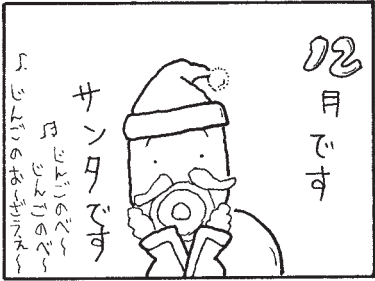 12月です
サンタです
♫じんごのべ〜
じんごのべ〜
♪じんごのお〜ざうぇ〜